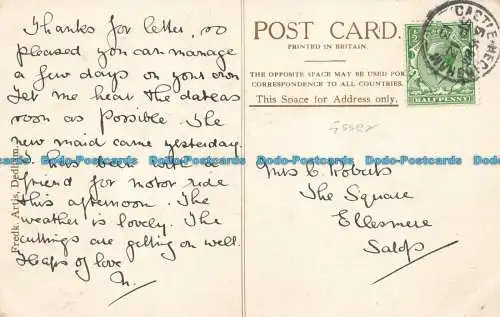 Thanks for letter, so
pleased you can manage
a few days on your own
Let me hear the date as
soon as possible. The
new maid came yesterday.
I have been with a
friend for motor ride
this afternoon. The
weather is lovely. The
cuttings are getting on well.
Heaps of love
M.
Fredk. Artis, Dedham.
POST CARD.
PRINTED IN BRITAIN.
THE OPPOSITE SPACE MAY BE USED FOR
CORRESPONDENCE TO ALL COUNTRIES.
This Space for Address only.
Essex
Miss C. Roberts
The Square
Ellesmere
Salop
HALFPENNY
Dodo-Postcards Dodo-Postcards Dodo-Postcards Dodo-Postcards Dodo-Postcards